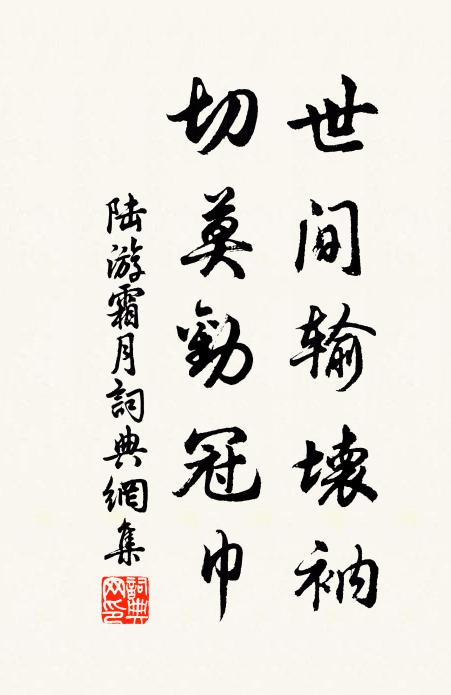 世间输壊衲
切莫勸冠巾
陆游霜月詞典網集
詞典网印